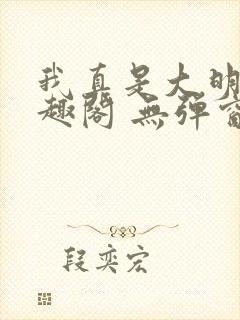 我真是大明
趣阁 無弹窗
段奕宏